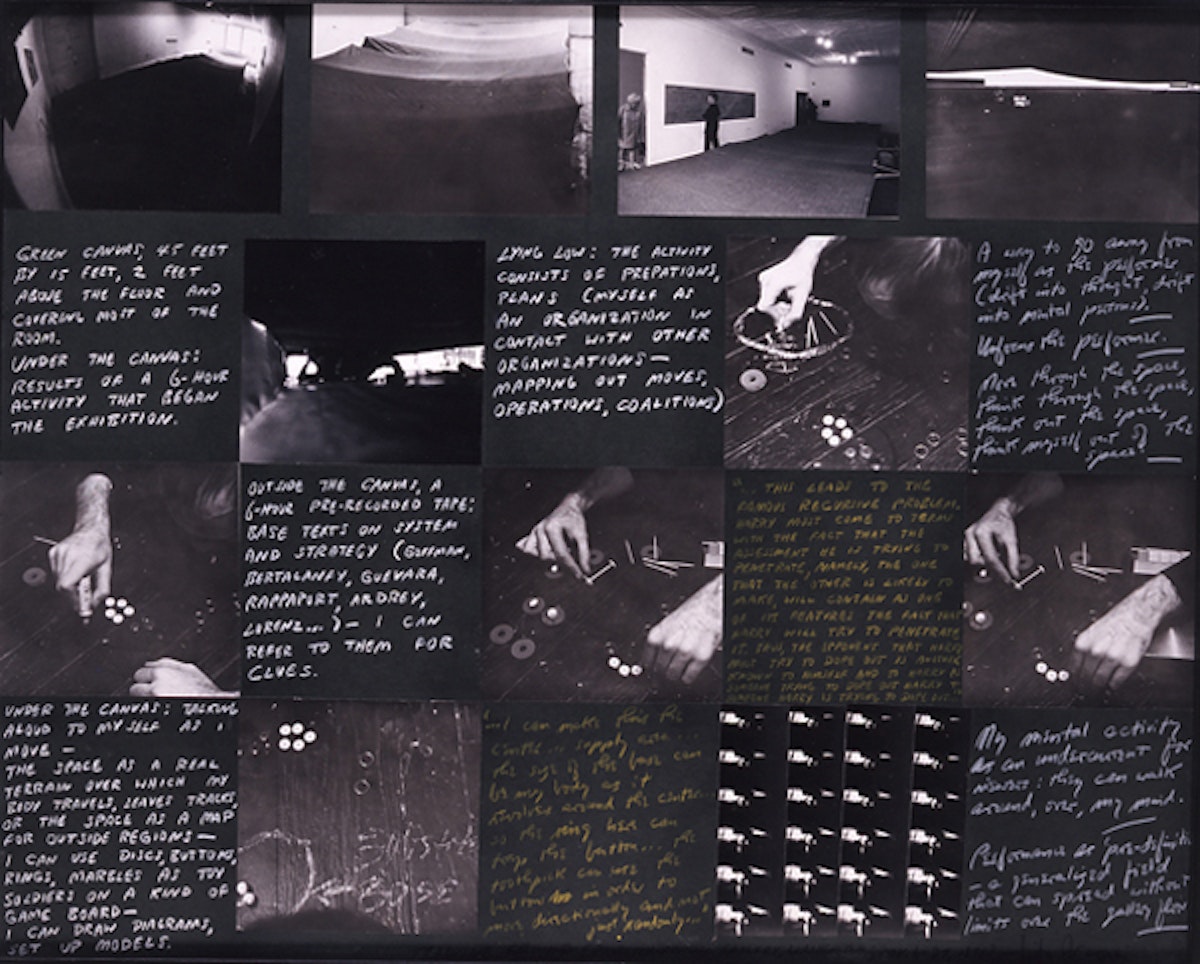 GREEN CANVAS, 45 FEET
BY 15 FEET, 2 FEET
ABOVE THE FLOOR AND
COVERING MOST OF THE
ROOM.
UNDER THE CANVAS:
RESULTS OF A 6-HOUR
ACTIVITY THAT BEGAN
THE EXHIBITION.
LYING LOW: THE ACTIVITY
CONSISTS OF PREPATIONS,
PLANS (MYSELF AS
AN ORGANIZATION IN
CONTACT WITH OTHER
ORGANIZATIONS—
MAPPING OUT MOVES,
OPERATIONS, COALITIONS)
A way to go away from
myself as the performer
(drift into thought, drift
into mental pictures).
the performer.
Move through the space,
think through the space,
think out the space,
think myself out of the
space.
OUTSIDE THE CANVAS, A
6-HOUR PRE-RECORDED TAPE:
BASE TEXTS ON SYSTEM
AND STRATEGY (GOFFMAN,
BERTALANFY, GUEVARA,
RAPPAPORT, ARDREY,
LORENZ...) — I CAN
REFER TO THEM FOR
CLUES.
"... THIS LEADS TO THE
FAMOUS RECURSIVE PROBLEM.
HARRY MUST COME TO TERMS
WITH THE FACT THAT THE
ASSESSMENT HE IS TRYING TO
PENETRATE, NAMELY, THE ONE
THAT THE OTHER IS LIKELY TO
MAKE, WILL CONTAIN AS ONE
OF ITS FEATURES THE FACT THAT
HARRY WILL TRY TO PENETRATE
IT. THUS, THE OPPONENT THAT HARRY
MUST TRY TO DOPE OUT IS ANOTHER
KNOWN TO HIMSELF AND TO HARRY AS
SOMEONE TRYING TO DOPE OUT HARRY
SOMEONE HARRY IS TRYING TO DOPE OUT..."
UNDER THE CANVAS: TALKING
ALOUD TO MYSELF AS I
MOVE —
THE SPACE AS A REAL
TERRAIN OVER WHICH MY
BODY TRAVELS, LEAVES TRACES,
OR THE SPACE AS A MAP
FOR OUTSIDE REGIONS —
I CAN USE DISCS, BUTTONS,
RINGS, MARBLES AS TOY
SOLDIERS ON A KIND OF
GAME BOARD —
I CAN DRAW DIAGRAMS,
SET UP MODELS.
BASE
... I can make this the
center... supply area...
the size of this base can
be my body as it
revolves around the center...
so this ring here can
this button... the
toothpick can use the
button in order to
move directionally and not
just randomly...
My mental activity
as an undercurrent for
viewers: they can walk
around, over, my mind.
Performance as 'pre-definite'
— a generalized field
that can spread without
limits over the gallery floor